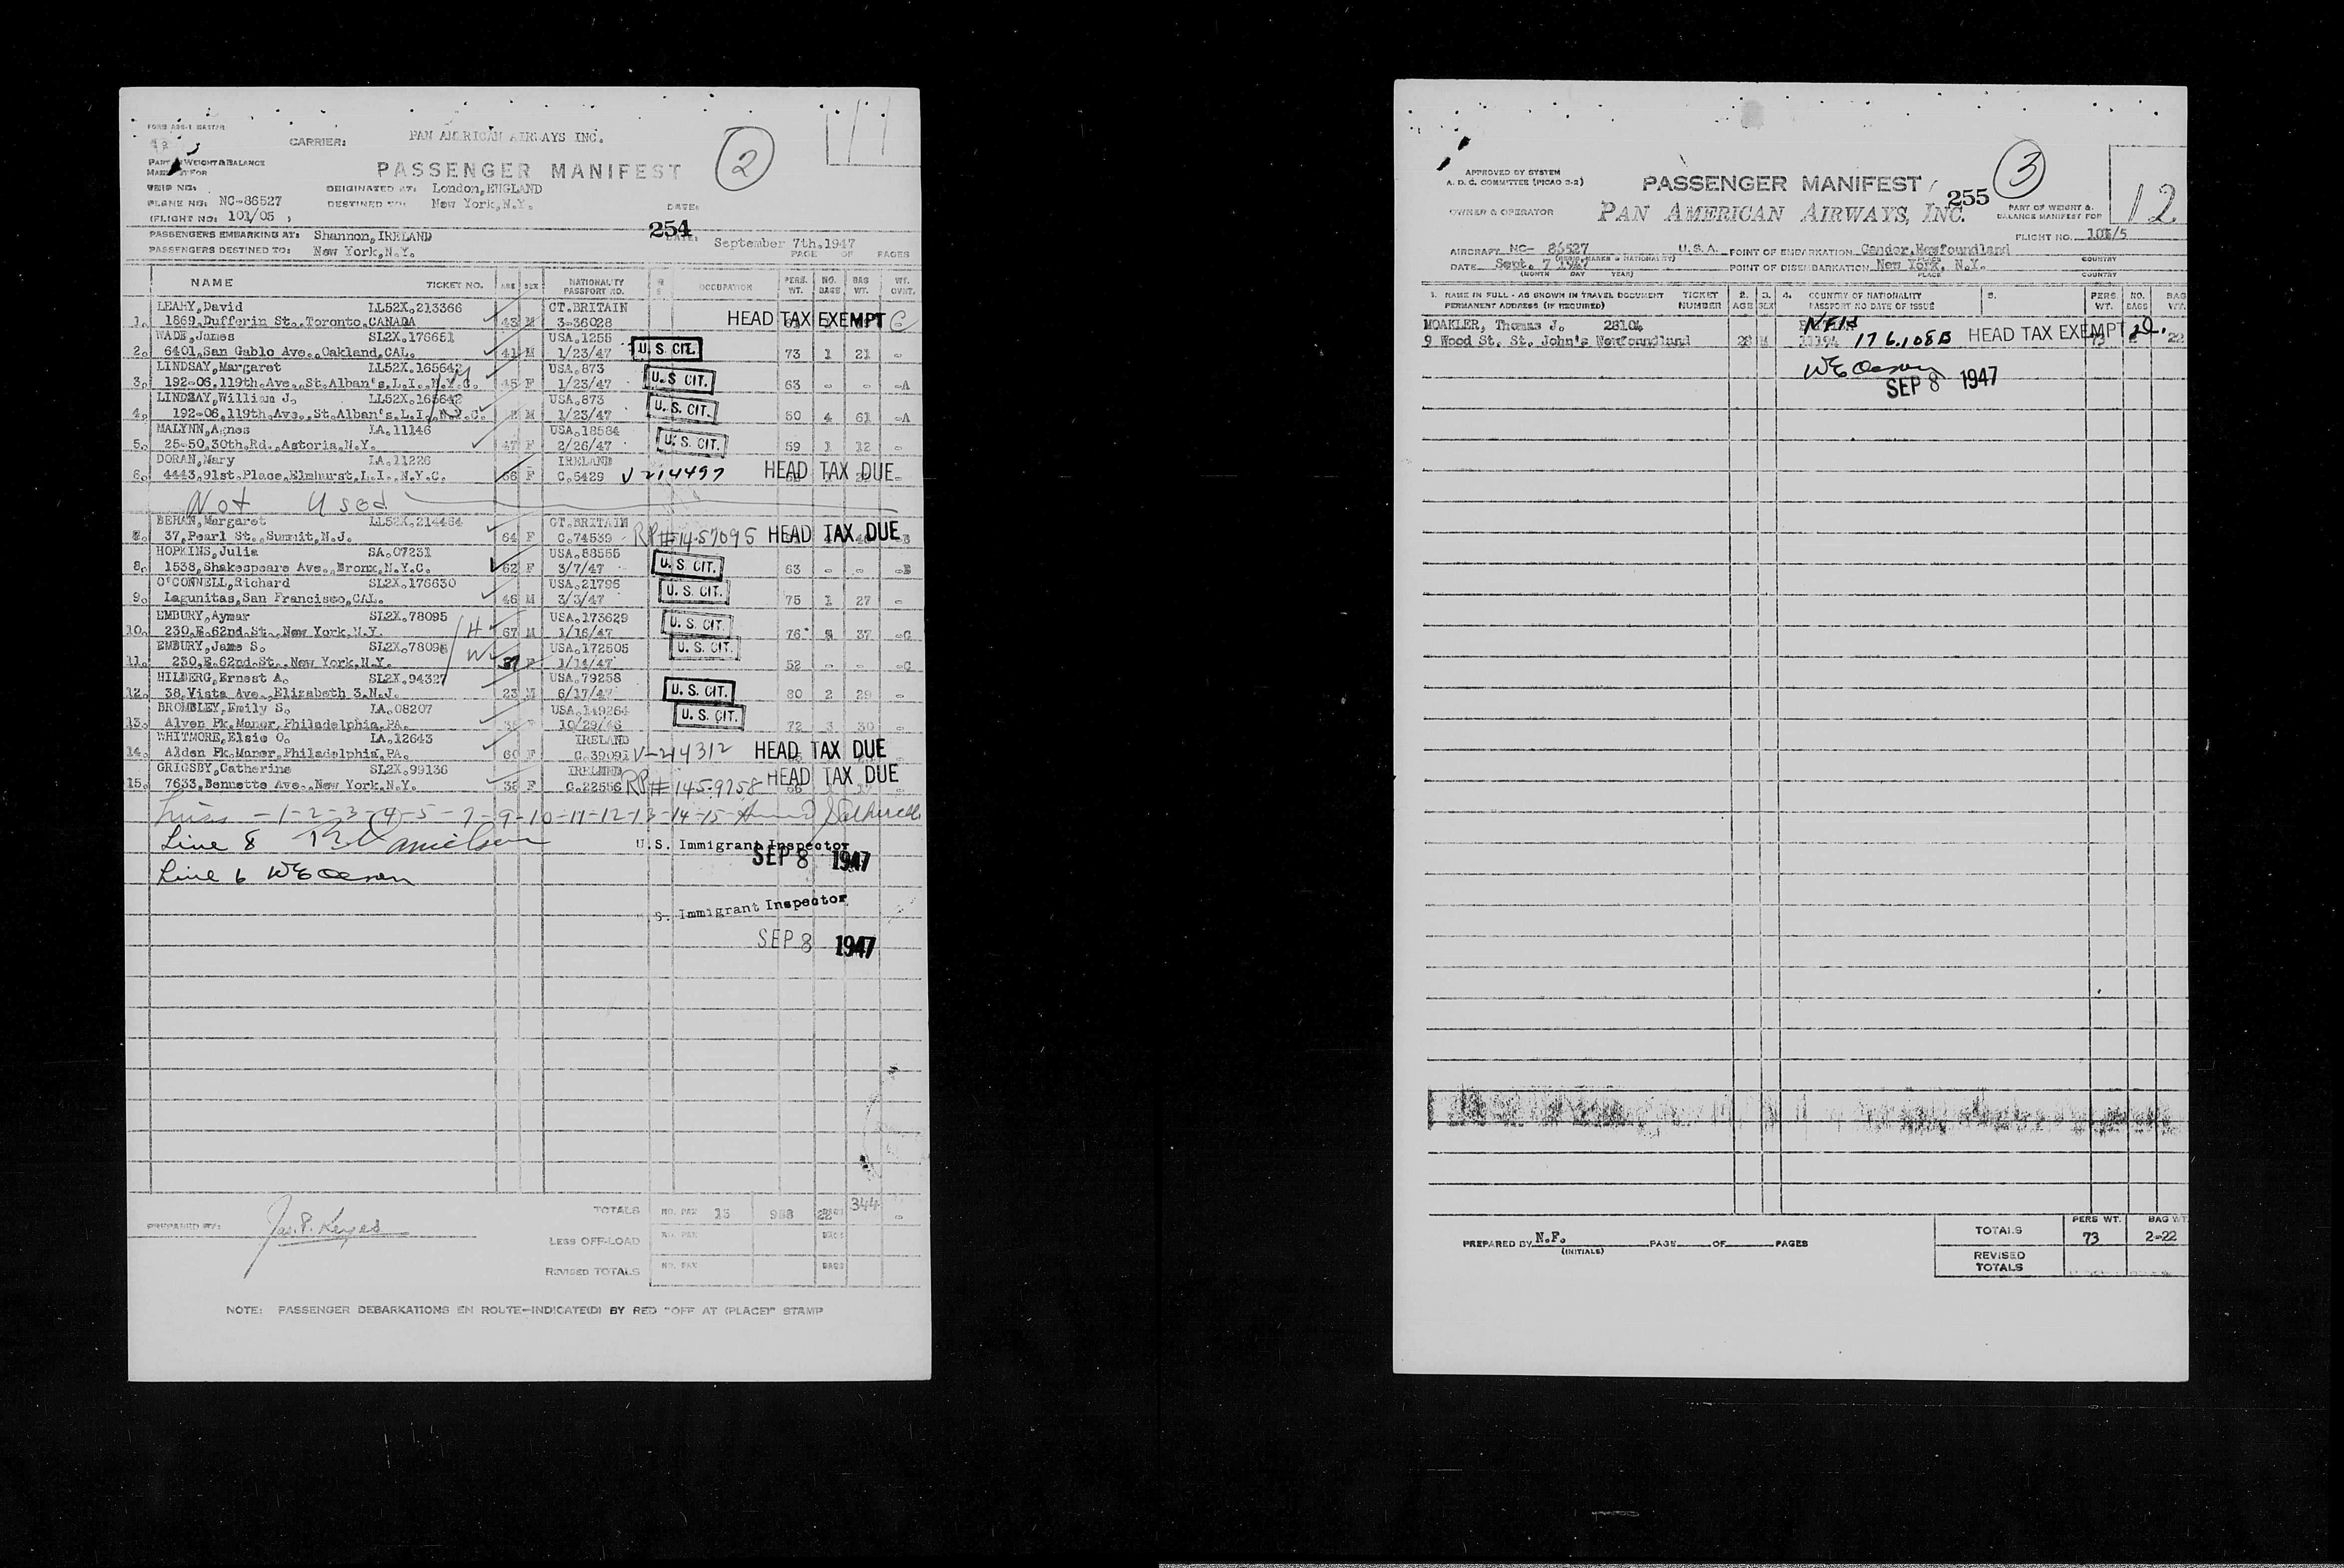 FORM ASG-1 MASTER
CARRIER: PAN AMERICAN AIRWAYS INC.
PART OF WEIGHT & BALANCE
MANIFEST FOR
PASSENGER MANIFEST
2
11
SHIP NO:
ORIGINATED AT: London,ENGLAND
PLANE NO: NC-86527
DESTINED TO: New York,N.Y.
DATE:
(FLIGHT NO: 101/05 )
254
PASSENGERS EMBARKING AT: Shannon,IRELAND
DATE: September 7th.1947
PASSENGERS DESTINED TO: New York,N.Y.
PAGE OF PAGES
NAME TICKET NO. AGE SEX NATIONALITY PASSPORT NO. OCCUPATION PERS. WT. NO. BAGS BAG WT. WT. OVNT.
LEAHY,David LL52X.213366 GT.BRITAIN
1. 1869.Dufferin St..Toronto.CANADA 43 M 3-36028 HEAD TAX EXEMPT
WADE,James SL2X.176651 USA.1255
2. 6401.San Gablo Ave..Oakland,CAL. 41 M 1/23/47 U.S. CIT. 73 1 21 -
LINDSAY,Margaret LL52X.165642 USA.873
3. 192-06.119th.Ave..St.Alban's.L.I..N.Y.C. 45 F 1/23/47 U.S CIT. 63 - - -A
LINDSAY,William J. LL52X.165642 USA.873
4. 192-06.119th.Ave..St.Alban's.L.I..N.Y.C. 2 M 1/23/47 U.S. CIT. 50 4 61 -A
MALYNN,Agnes LA.11146 USA.18584
5. 25-50.30th.Rd..Astoria,N.Y. 47 F 2/26/47 U.S. CIT. 59 1 12 -
DORAN,Mary LA.11226 IRELAND
6. 4443.91st.Place.Elmhurst.L.I..N.Y.C. 66 F C.5429 V 214497 HEAD TAX DUE
Not Used
BEHAN,Margaret LL52X.214464 GT.BRITAIN
37,Pearl St..Summit,N.J. 64 F C.74539 RP#14-57095 HEAD TAX DUE
HOPKINS,Julia SA.07231 USA.88555
8. 1538,Shakespeare Ave..Bronx,N.Y.C. 62 F 3/7/47 U.S CIT. 63 - - -B
O'CONNELL,Richard SL2X.176630 USA.21796
9. Lagunitas,San Francisco,CAL. 46 M 3/3/47 U.S. CIT. 75 1 27 -
EMBURY,Aymar SL2X.78095 USA.173629
10. 230.E.62nd.St..New York.N.Y. H 67 M 1/16/47 U.S. CIT. 76 37 -C
EMBURY,Jane S. SL2X.78096 USA.172505
11. 230.E.62nd.St..New York.N.Y. W F 1/14/47 U.S. CIT. 52 - - -C
HILBERG,Ernest A. SL2X.94327 USA.79258
12. 38,Vista Ave..Elizabeth 3.N.J. 23 M 6/17/47 U. S. CIT. 80 2 29 -
BROMBLEY,Emily S. LA.08207 USA.149264
13. Alven Pk.Manor,Philadelphia,PA. F 10/29/46 U. S. CIT. 72 3 30 -
WHITMORE,Elsie O. LA.12643 IRELAND
14. Alden Pk.Manor,Philadelphia,PA. 60 F C.39091 V-214312 HEAD TAX DUE
GRIGSBY,Catherine SL2X.99136 IRELAND
15. 7633,Bennette Ave..New York.N.Y. 38 F C.22556 RP# 145-9758 HEAD TAX DUE
Lines -1-2-3-4-5-7-9-10-11-12-13-14-15-
Line 8
U.S. Immigrant Inspector
SEP 8 1947
Line 6 WE Oleson
S. Immigrant Inspector
SEP 8 1947
PREPARED BY: Jas.P. Keyes
TOTALS NO. PAX 15 958 22 344 -
LESS OFF-LOAD NO. PAX BAGS
REVISED TOTALS NO. PAX BAGS
NOTE: PASSENGER DEBARKATIONS EN ROUTE-INDICATE(D) BY RED "OFF AT (PLACE)" STAMP
APPROVED BY SYSTEM
A. D. C. COMMITTEE (PICAO 2-2)
PASSENGER MANIFEST
255
3
12
OWNER & OPERATOR PAN AMERICAN AIRWAYS, INC.
PART OF WEIGHT &
BALANCE MANIFEST FOR
FLIGHT NO. 101/5
AIRCRAFT NC- 86527 U.S.A. POINT OF EMBARKATION Gander.Newfoundland
(MARKS & NATIONALITY) PLACE COUNTRY
DATE Sept. 7 1947 POINT OF DISEMBARKATION New York, N.Y.
(MONTH DAY YEAR) PLACE COUNTRY
1. NAME IN FULL - AS SHOWN IN TRAVEL DOCUMENT TICKET 2. 3. 4. COUNTRY OF NATIONALITY 5. PERS. NO. BAG
PERMANENT ADDRESS (IF REQUIRED) NUMBER AGE SEX PASSPORT NO DATE OF ISSUE WT. BAGS WT.
MOAKLER, Thomas J. 28104 NFld
9 Wood St. St. John's Newfoundland 28 M 31394 176.108B HEAD TAX EXEMPT 73 22
WE Oleson
SEP 8 1947
PREPARED BY N.F. PAGE OF PAGES
(INITIALS)
PERS WT. BAG WT
TOTALS 73 2-22
REVISED
TOTALS